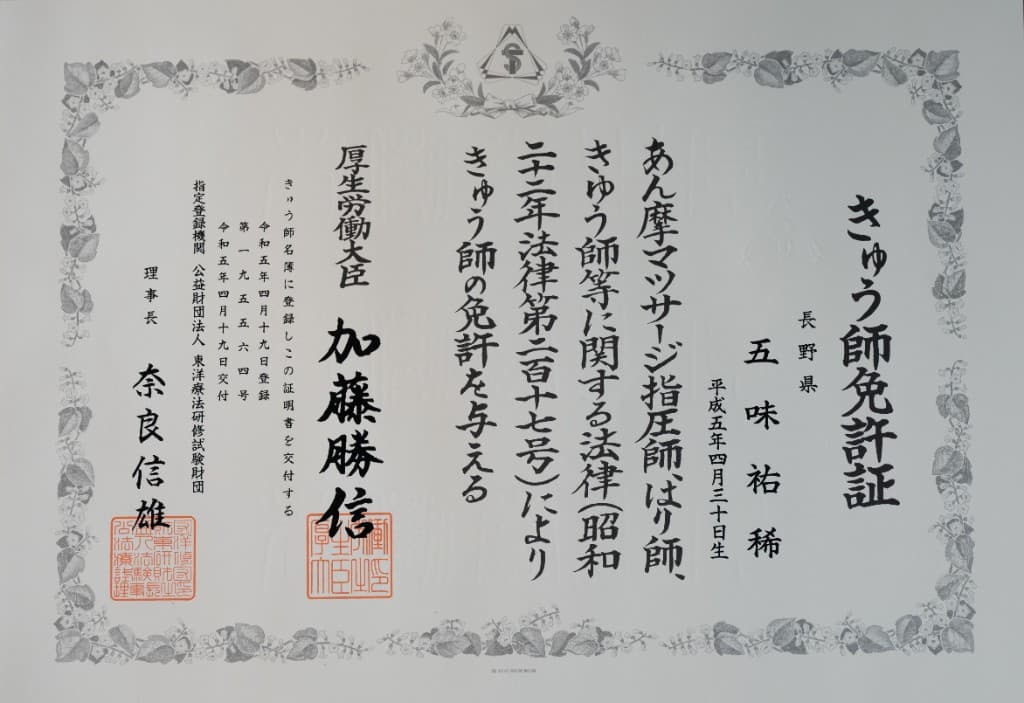 きゅう師免許証
長野県
五味祐稀
平成五年四月三十日生
あん摩マツサージ指圧師、はり師、
きゆう師等に関する法律(昭和
二十二年法律第二百十七号)により
きゅう師の免許を与える
厚生労働大臣 加藤勝信
きゅう師名簿に登録しこの証明書を交付する
令和五年四月十九日登録
第一九五五六四号
令和五年四月十九日交付
指定登録機関 公益財団法人 東洋療法研修試験財団
理事長 奈良信雄